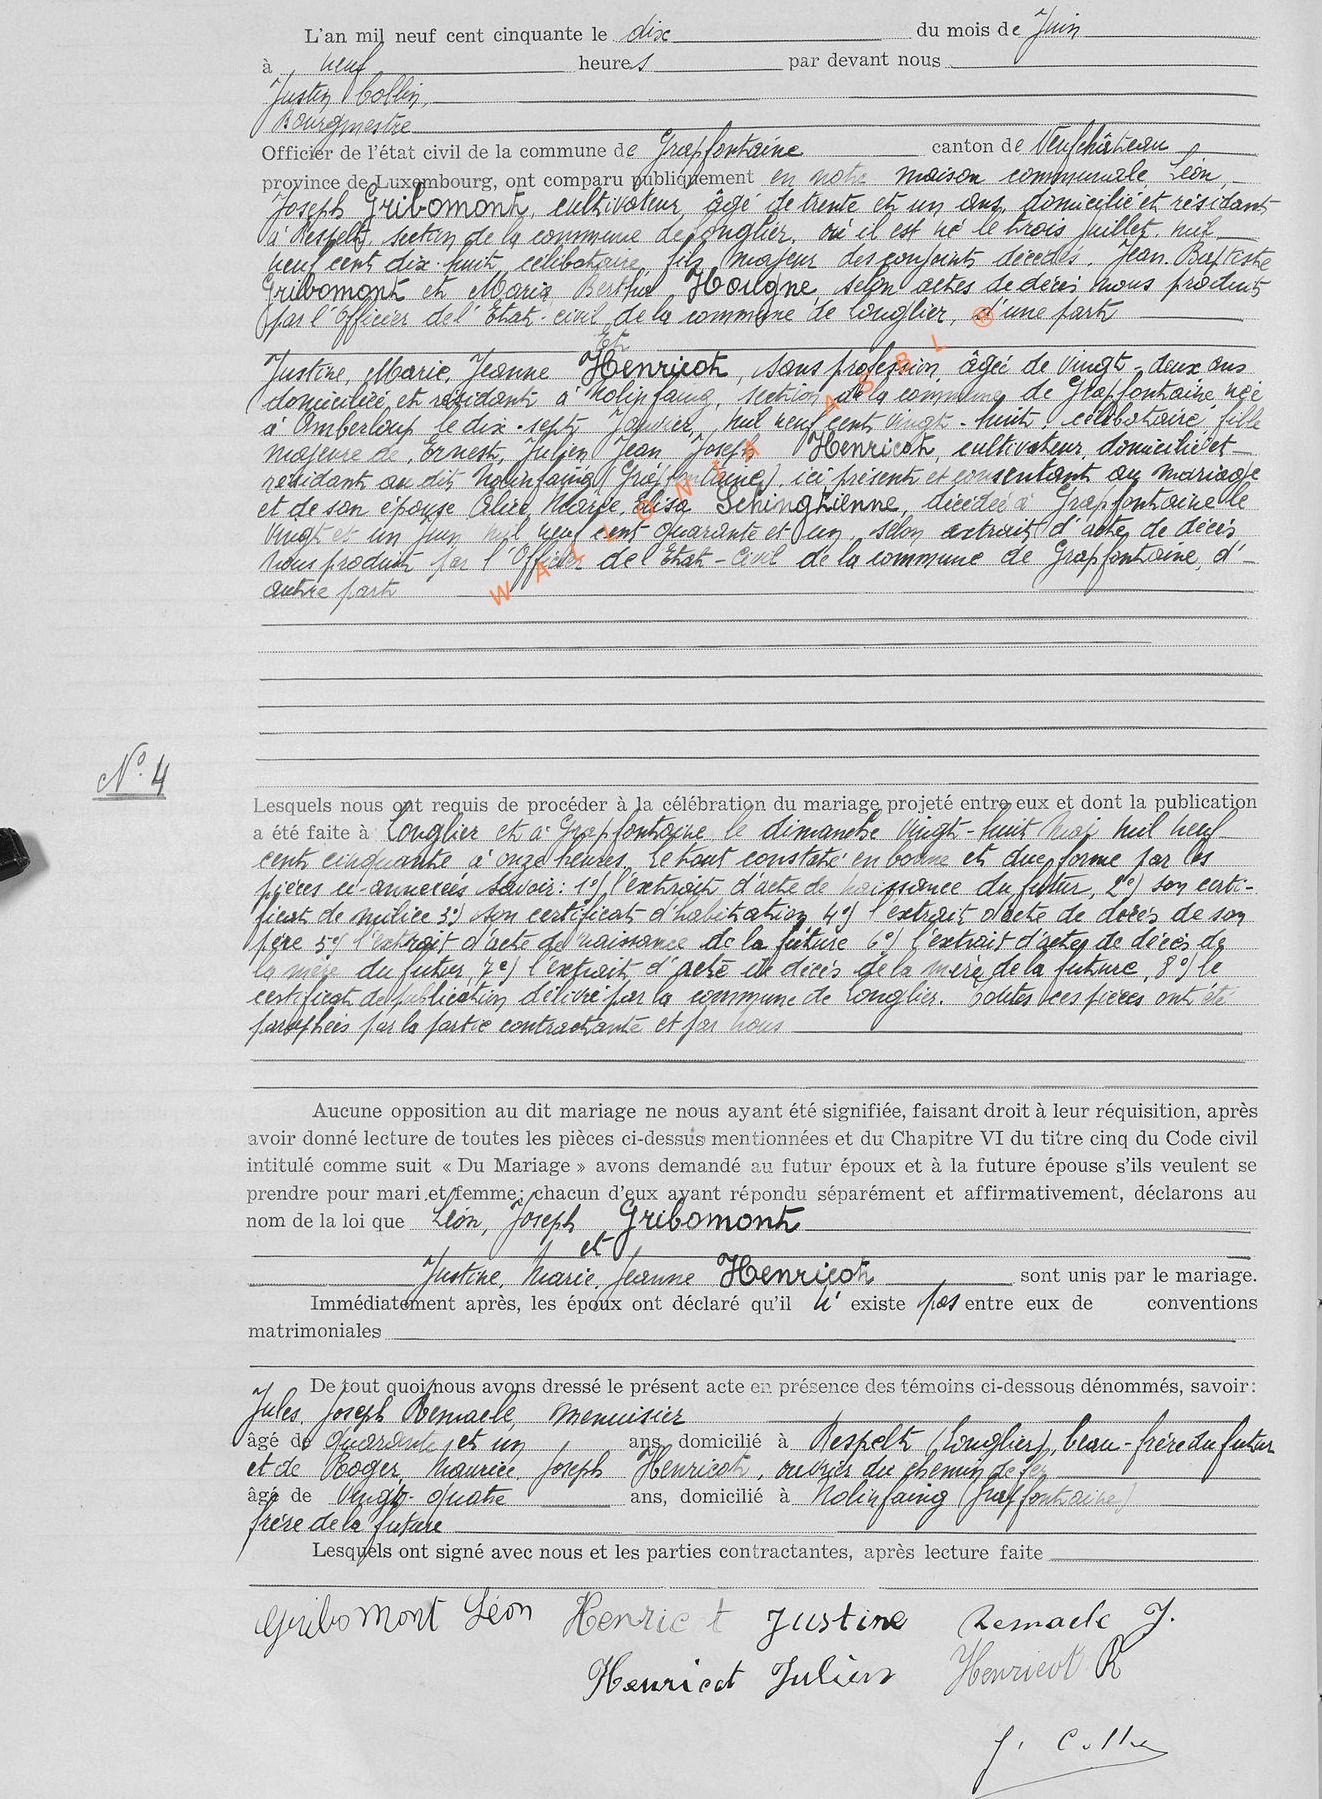 L'an mil neuf cent cinquante le dix du mois de Juin
à neuf heures par devant nous
Justin Collin,
Bourgmestre
Officier de l'état civil de la commune de Grapfontaine canton de Neufchâteau
province de Luxembourg, ont comparu publiquement en notre maison communale Léon,
Joseph Gribomont, cultivateur, âgé de trente et un ans, domicilié et résidant
à Respelt, section de la commune de Longlier, où il est né le trois juillet mil
neuf cent dix-huit, célibataire, fils majeur des conjoints décédés, Jean-Baptiste
Gribomont et Maria Berthe Hougne, selon actes de décès nous produits
par l'Officier de l'Etat-civil de la commune de Longlier, d'une part
Et
Justine, Marie, Jeanne Henricot, sans profession, âgée de vingt-deux ans
domiciliée et résidant à Nolinfaing, section de la commune de Grapfontaine née
à Amberloup le dix-sept Janvier, mil neuf cent vingt-huit, célibataire, fille
majeure de, Ernest, Julien, Jean, Joseph Henricot, cultivateur, domicilié et
résidant au dit Nolinfaing (Grapfontaine), ici présent et consentant au mariage
et de son épouse Alice, Marie, Elisa Schingtienne, décédée à Grapfontaine le
vingt et un Juin mil neuf cent quarante et un, selon extrait d'acte de décès
nous produit par l'Officier de l'Etat-Civil de la commune de Grapfontaine, d'
autre part
WALLONIA ASBL ®
N° 4
Lesquels nous ont requis de procéder à la célébration du mariage projeté entre eux et dont la publication
a été faite à Longlier et à Grapfontaine le dimanche vingt-huit Mai mil neuf
cent cinquante à onze heures. Le tout constaté en bonne et due forme par les
pièces ci-annexées savoir: 1°) l'extrait d'acte de naissance du futur, 2°) son certi-
ficat de milice 3°) son certificat d'habitation, 4°) l'extrait d'acte de décès de son
père 5°) l'extrait d'acte de naissance de la future 6°) l'extrait d'acte de décès de
la mère du futur, 7°) l'extrait d'acte de décès de la mère de la future, 8°) le
certificat de publication délivré par la commune de Longlier. Toutes ces pièces ont été
paraphées par la partie contractante et par nous
Aucune opposition au dit mariage ne nous ayant été signifiée, faisant droit à leur réquisition, après
avoir donné lecture de toutes les pièces ci-dessus mentionnées et du Chapitre VI du titre cinq du Code civil
intitulé comme suit « Du Mariage » avons demandé au futur époux et à la future épouse s'ils veulent se
prendre pour mari et femme; chacun d'eux ayant répondu séparément et affirmativement, déclarons au
nom de la loi que Léon, Joseph Gribomont
et
Justine, Marie, Jeanne Henricot sont unis par le mariage.
Immédiatement après, les époux ont déclaré qu'il n' existe pas entre eux de conventions
matrimoniales
De tout quoi nous avons dressé le présent acte en présence des témoins ci-dessous dénommés, savoir:
Jules, Joseph Remacle, menuisier
âgé de quarante et un ans, domicilié à Respelt (Longlier), beau-frère du futur
et de Roger, Maurice, Joseph Henricot, ouvrier du chemin de fer
âgé de vingt-quatre ans, domicilié à Nolinfaing (Grapfontaine)
frère de la future
Lesquels ont signé avec nous et les parties contractantes, après lecture faite
Gribomont Léon Henricot Justine Remacle J.
Henricot Julien Henricot R
J. Collin